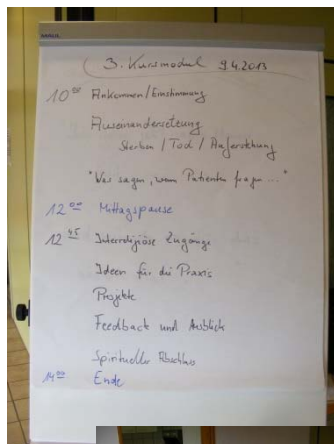 3. Kursmodul 9.4.2013
10⁰⁰ Ankommen/Einstimmung
Auseinandersetzung
Sterben / Tod / Auferstehung
"Was sagen, wenn Patienten fragen..."
12⁰⁰ Mittagspause
12⁴⁵ Interreligiöse Zugänge
Ideen für die Praxis
Projekte
Feedback und Ausblick
Spiritueller Abschluss
14⁰⁰ Ende